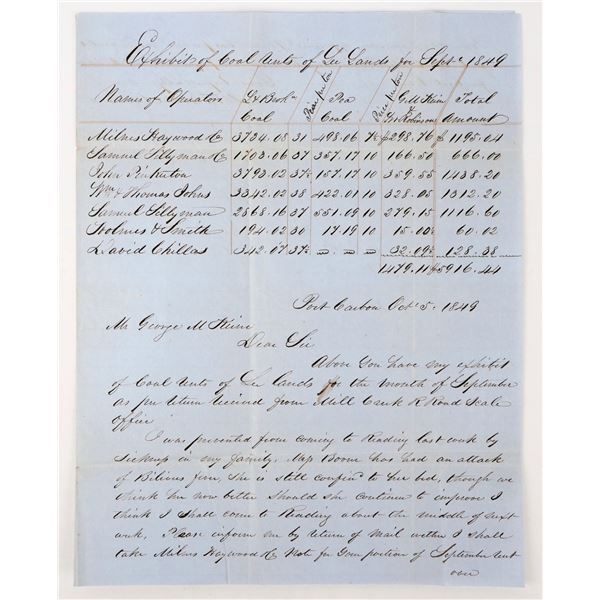 Exhibit of Coal Rents of Lee Lands for Sept 1849
Names of Operators Gr Brkn Coal Price per ton Pea Coal Price per ton G M Keim & Jno Robinson Total Amount
Milnes Haywood & Co 3734.08 31 498.06 7½ $298.76 $1195.04
Samuel Sillyman & Co 1703.06 37 357.17 10 166.50 666.00
John Pinkerton 3793.02 37½ 157.17 10 359.55 1438.20
Wm & Thomas Johns 3342.02 38 422.01 10 328.05 1312.20
Samuel Sillyman 2868.16 37 551.19 10 279.15 1116.60
Holmes & Smith 194.02 30 17.19 10 15.00½ 60.02
David Chillas 342.07 37½ 32.09½ 128.38
1479.11 $5916.44
Port Carbon Oct 5, 1849
Mr George M Keim
Dear Sir
Above you have my exhibit
of Coal Rents of Lee lands for the month of September
as per return received from Mill Creek R Road Scale
office
I was prevented from coming to Reading last week by
sickness in my family. Mrs Boone has had an attack
of Bilious fever, she is still confind to her bed, though we
think her now better should she continue to improve I
think I shall come to Reading about the middle of next
week. Please inform me by return of mail wether I shall
take Milnes Haywood & Co Note for your portion of September Rent
over